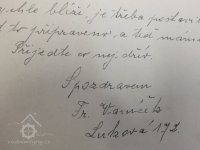 rychle blíží, je třeba postavit
to připraveno, a teď máme
Přijeďte co nejdřív.
S pozdravem
Fr. Vaníček
Luková 172.